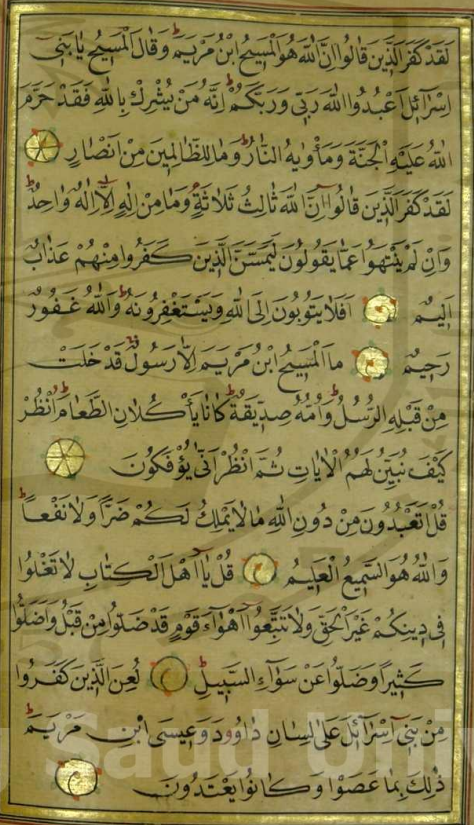 لَقَدْ كَفَرَ الَّذِينَ قَالُوا اِنَّ اللّٰهَ هُوَ الْمَسِيحُ ابْنُ مَرْيَمَ وَقَالَ الْمَسِيحُ يَا بَنِى
اِسْرَآئِلَ اعْبُدُوا اللّٰهَ رَبِّى وَرَبَّكُمْ اِنَّهُ مَنْ يُشْرِكْ بِاللّٰهِ فَقَدْ حَرَّمَ
اللّٰهُ عَلَيْهِ الْجَنَّةَ وَمَأْوٰيهُ النَّارُ وَمَا لِلظَّالِمِينَ مِنْ اَنْصَارٍ
لَقَدْ كَفَرَ الَّذِينَ قَالُوا اِنَّ اللّٰهَ ثَالِثُ ثَلَاثَةٍ وَمَا مِنْ اِلٰهٍ اِلَّا اِلٰهٌ وَاحِدٌ
وَاِنْ لَمْ يَنْتَهُوا عَمَّا يَقُولُونَ لَيَمَسَّنَّ الَّذِينَ كَفَرُوا مِنْهُمْ عَذَابٌ
اَلِيمٌ اَفَلَا يَتُوبُونَ اِلَى اللّٰهِ وَيَسْتَغْفِرُونَهُ وَاللّٰهُ غَفُورٌ
رَحِيمٌ مَا الْمَسِيحُ ابْنُ مَرْيَمَ اِلَّا رَسُولٌ قَدْ خَلَتْ
مِنْ قَبْلِهِ الرُّسُلُ وَاُمُّهُ صِدِّيقَةٌ كَانَا يَأْكُلَانِ الطَّعَامَ اُنْظُرْ
كَيْفَ نُبَيِّنُ لَهُمُ الْاٰيَاتِ ثُمَّ انْظُرْ اَنّٰى يُؤْفَكُونَ
قُلْ اَتَعْبُدُونَ مِنْ دُونِ اللّٰهِ مَا لَا يَمْلِكُ لَكُمْ ضَرًّا وَلَا نَفْعًا
وَاللّٰهُ هُوَ السَّمِيعُ الْعَلِيمُ قُلْ يَا اَهْلَ الْكِتَابِ لَا تَغْلُوا
فِى دِينِكُمْ غَيْرَ الْحَقِّ وَلَا تَتَّبِعُوا اَهْوَآءَ قَوْمٍ قَدْ ضَلُّوا مِنْ قَبْلُ وَاَضَلُّوا
كَثِيرًا وَضَلُّوا عَنْ سَوَآءِ السَّبِيلِ لُعِنَ الَّذِينَ كَفَرُوا
مِنْ بَنِى اِسْرَآئِلَ عَلٰى لِسَانِ دَاوُودَ وَعِيسَى ابْنِ مَرْيَمَ
ذٰلِكَ بِمَا عَصَوْا وَكَانُوا يَعْتَدُونَ
Saud Uni